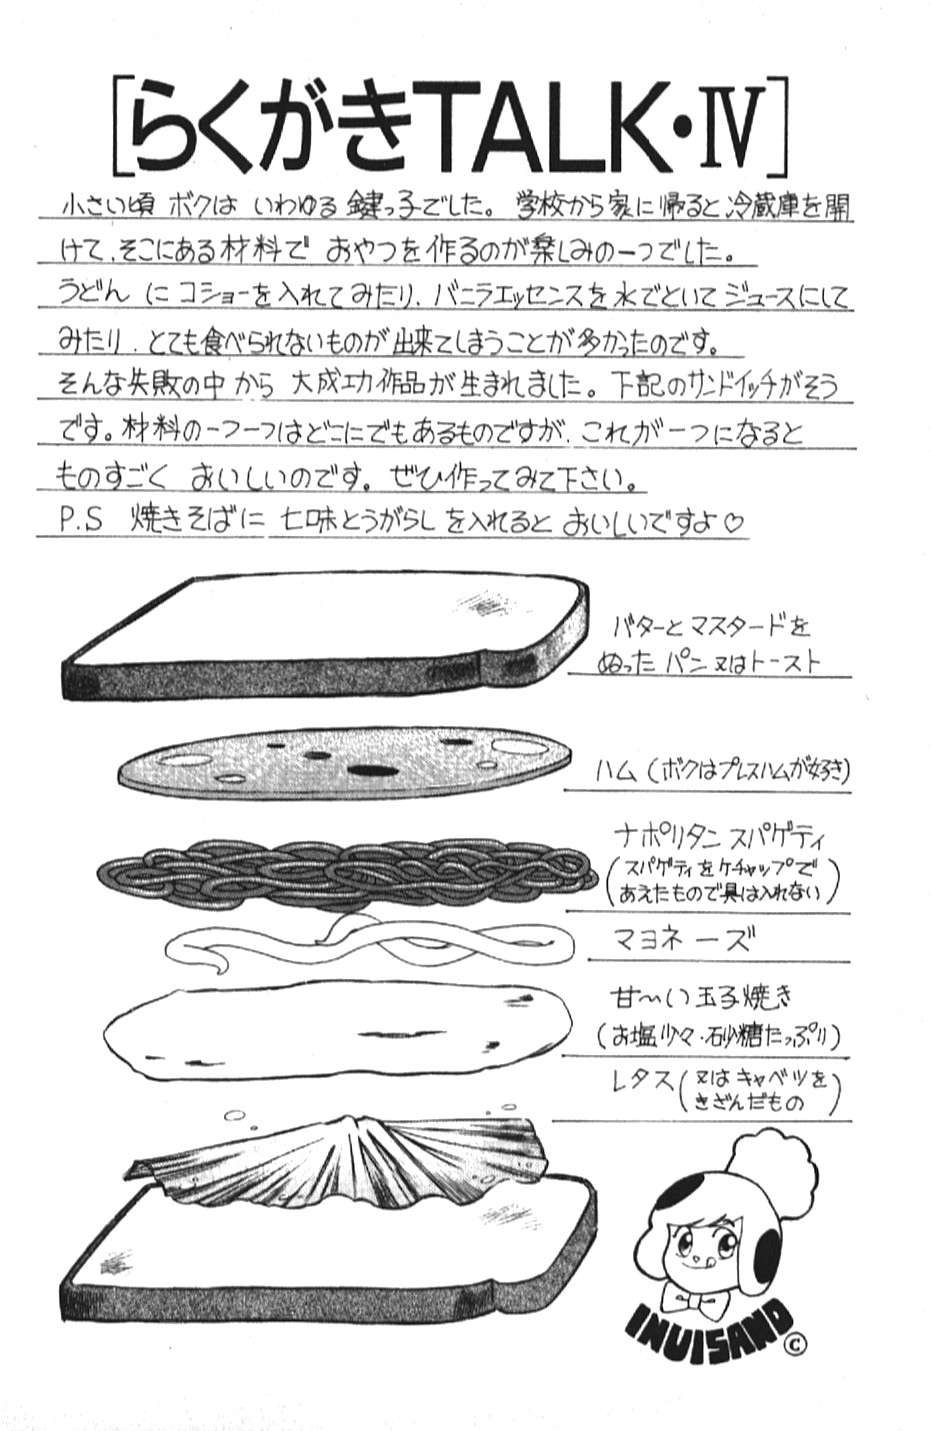 [らくがきTALK・Ⅳ]
小さい頃 ボクは いわゆる 鍵っ子でした。 学校から家に帰ると冷蔵庫を開
けて、そこにある材料で おやつを作るのが楽しみの一つでした。
うどん に コショーを入れてみたり、バニラエッセンスを水でといてジュースにして
みたり、とても食べられないものが出来てしまうことが多かったのです。
そんな失敗の中から 大成功作品が生まれました。下記のサンドイッチがそう
です。材料の一つ一つはどこにでもあるものですが、これが一つになると
ものすごく おいしいのです。ぜひ作ってみて下さい。
P.S 焼きそばに 七味とうがらしを入れると おいしいですよ♡
バターとマスタードを
ぬった パン 又はトースト
ハム (ボクはプレスハムが好き)
ナポリタン スパゲティ
(スパゲティをケチャップで
あえたもので具は入れない)
マヨネーズ
甘〜い 玉子焼き
(お塩少々・砂糖たっぷり)
レタス(又はキャベツを
きざんだもの)
INUISAND
©